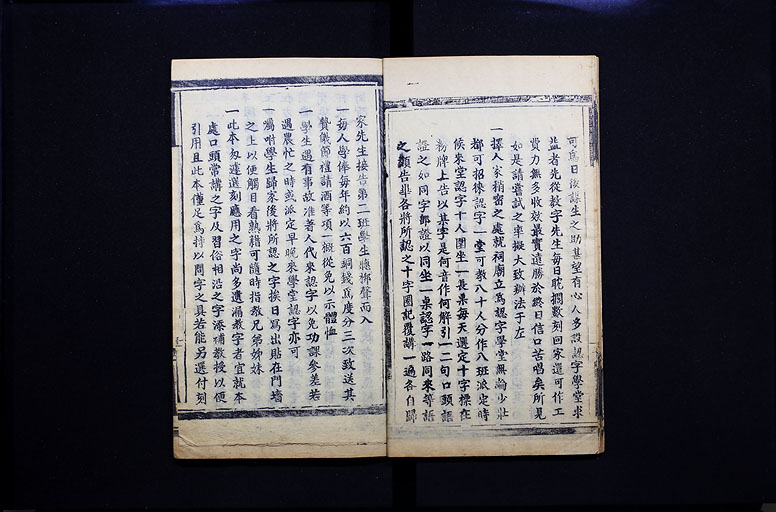 可爲日後謀生之助甚望有心人多設認字學堂求
益者先從教字先生每日耽擱數刻回家還可作工
費力無多收效最實遠勝於終日信口苦唱矣所見
如是請嘗試之率擬大致辦法于左
一擇人家稍密之處就祠廟立爲認字學堂無論少壯
都可招徠認字一堂可教八十人分作八班派定時
候來堂認字十人圍坐一長桌每天選定十字標在
粉牌上告以某字是何音作何解引一二句口頭語
證之如同字即證以同坐一桌認字一路同來等語
之類告畢各將所認之十字圈記覆講一遍各自歸
家先生接告第二班學生聽梆聲而入
一每人學俸每年約以六百銅錢爲度分三次致送其
贄儀節禮請酒等項一概從免以示體恤
一學生遇有事故准著人代來認字以免功課參差若
遇農忙之時或派定早晚來學堂認字亦可
一囑咐學生歸家後將所認之字挨日寫出貼在門墻
之上以便觸目看熟藉可隨時指教兄弟姊妹
一此本匆遽選刻應用之字尚多遺漏教字者宜就本
處口頭常講之字及習俗相沿之字添補教授以便
引用且此本僅足爲持以問字之具若能另選付刻